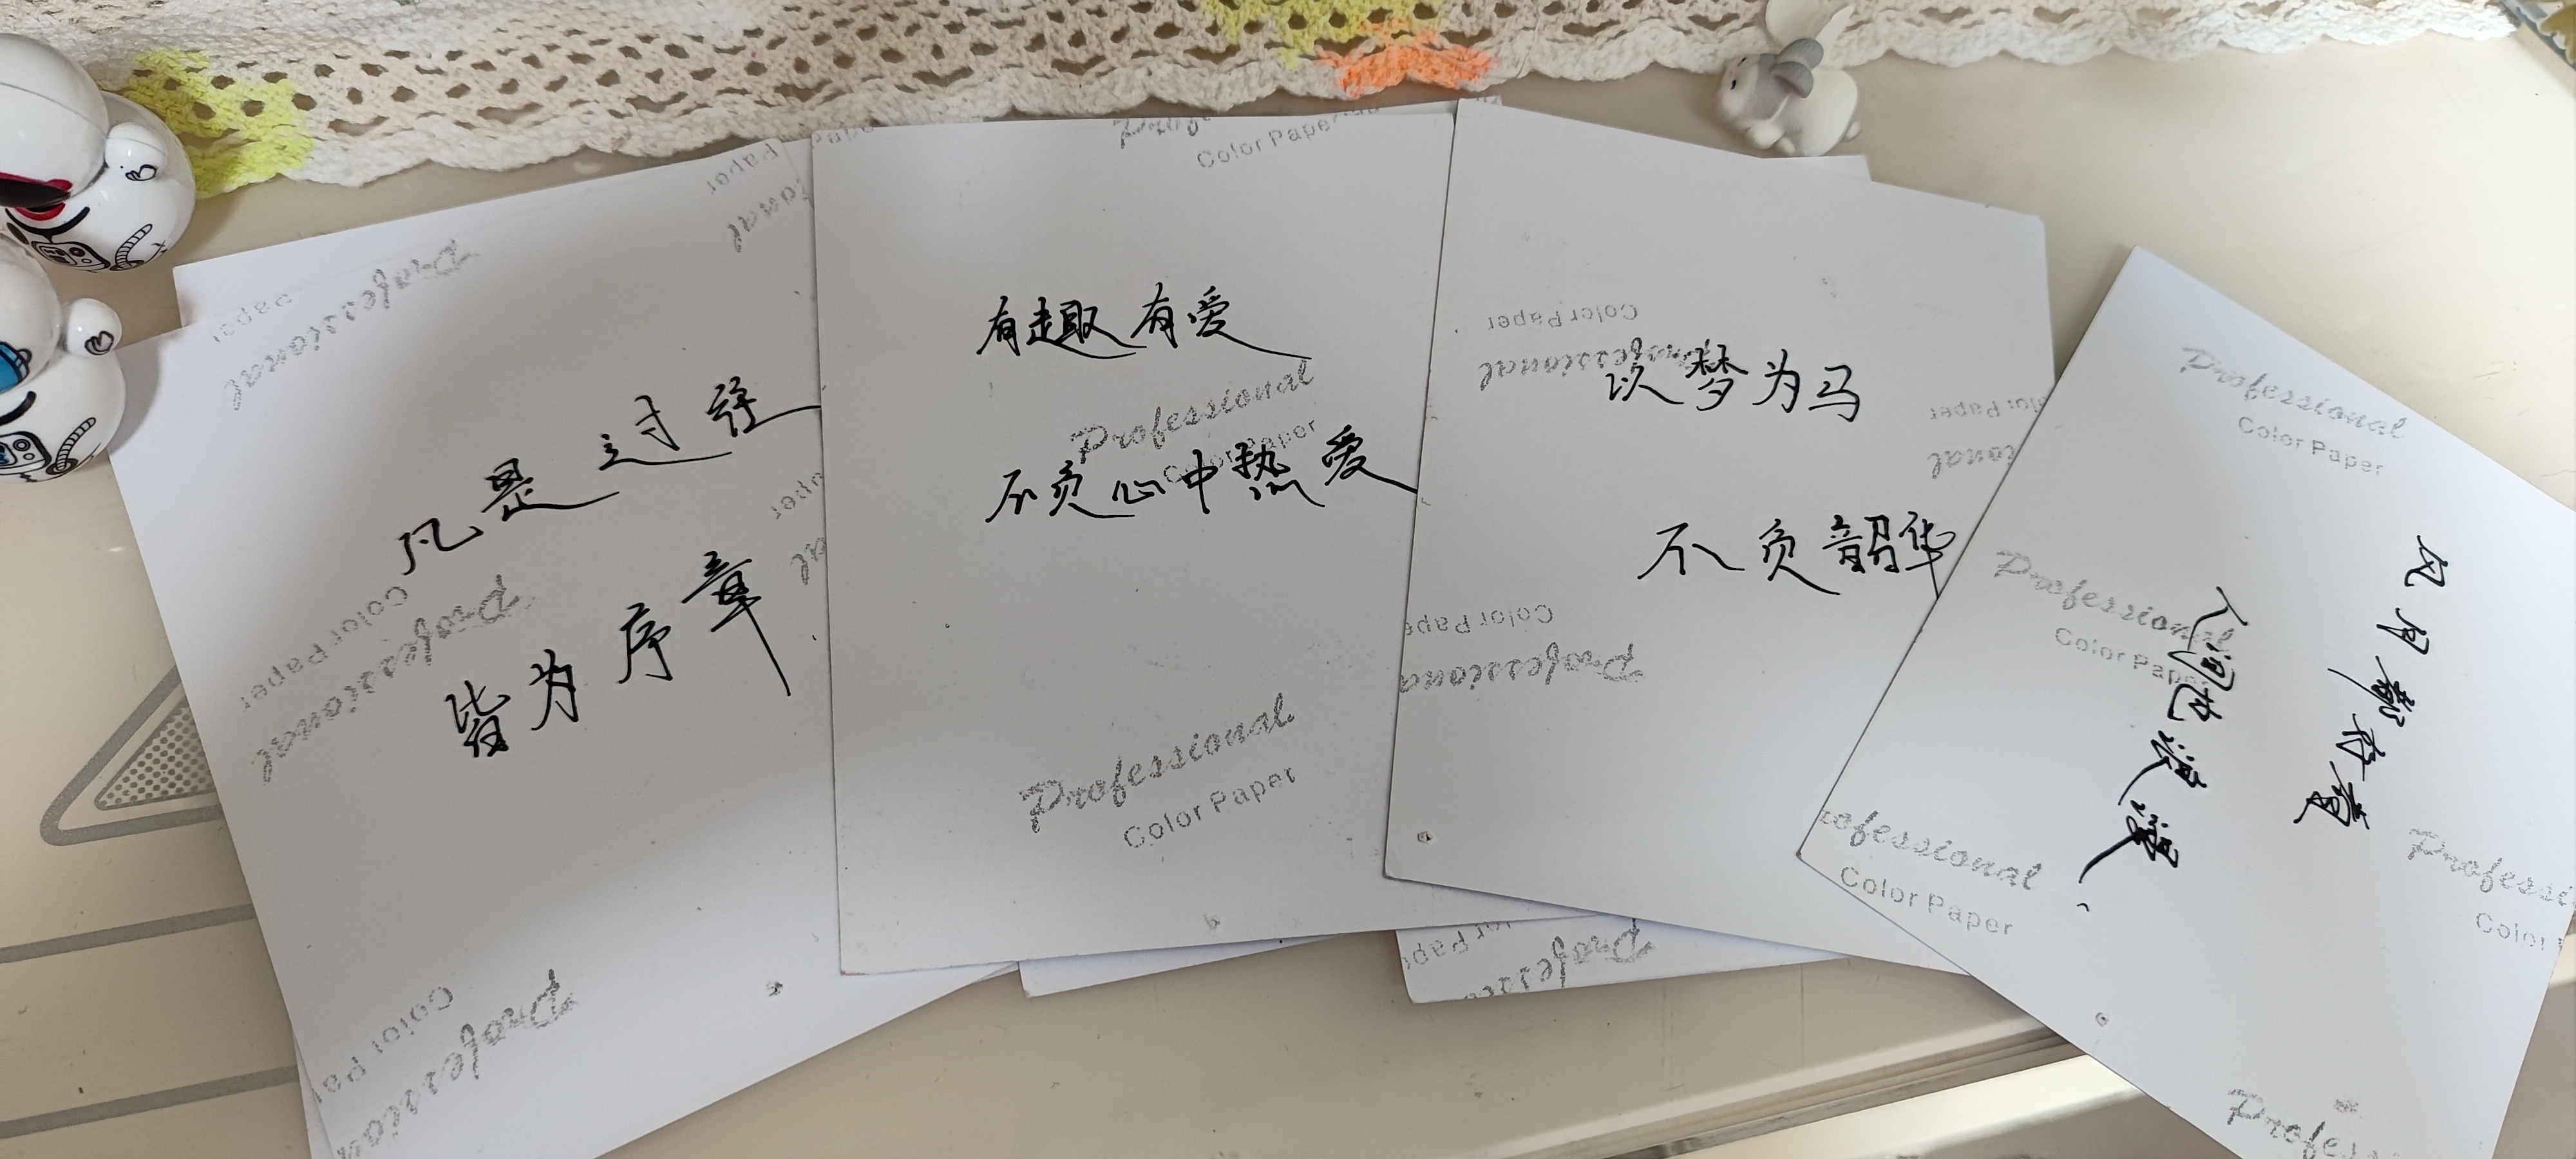 凡是过往
皆为序章
Professional
Color Paper
有趣有爱
不负心中热爱
Professional
Color Paper
Professional
Color Paper
以梦为马
不负韶华
Professional
Color Paper
风月都好看
人间也浪漫
Professional
Color Paper
Professional
Color Paper